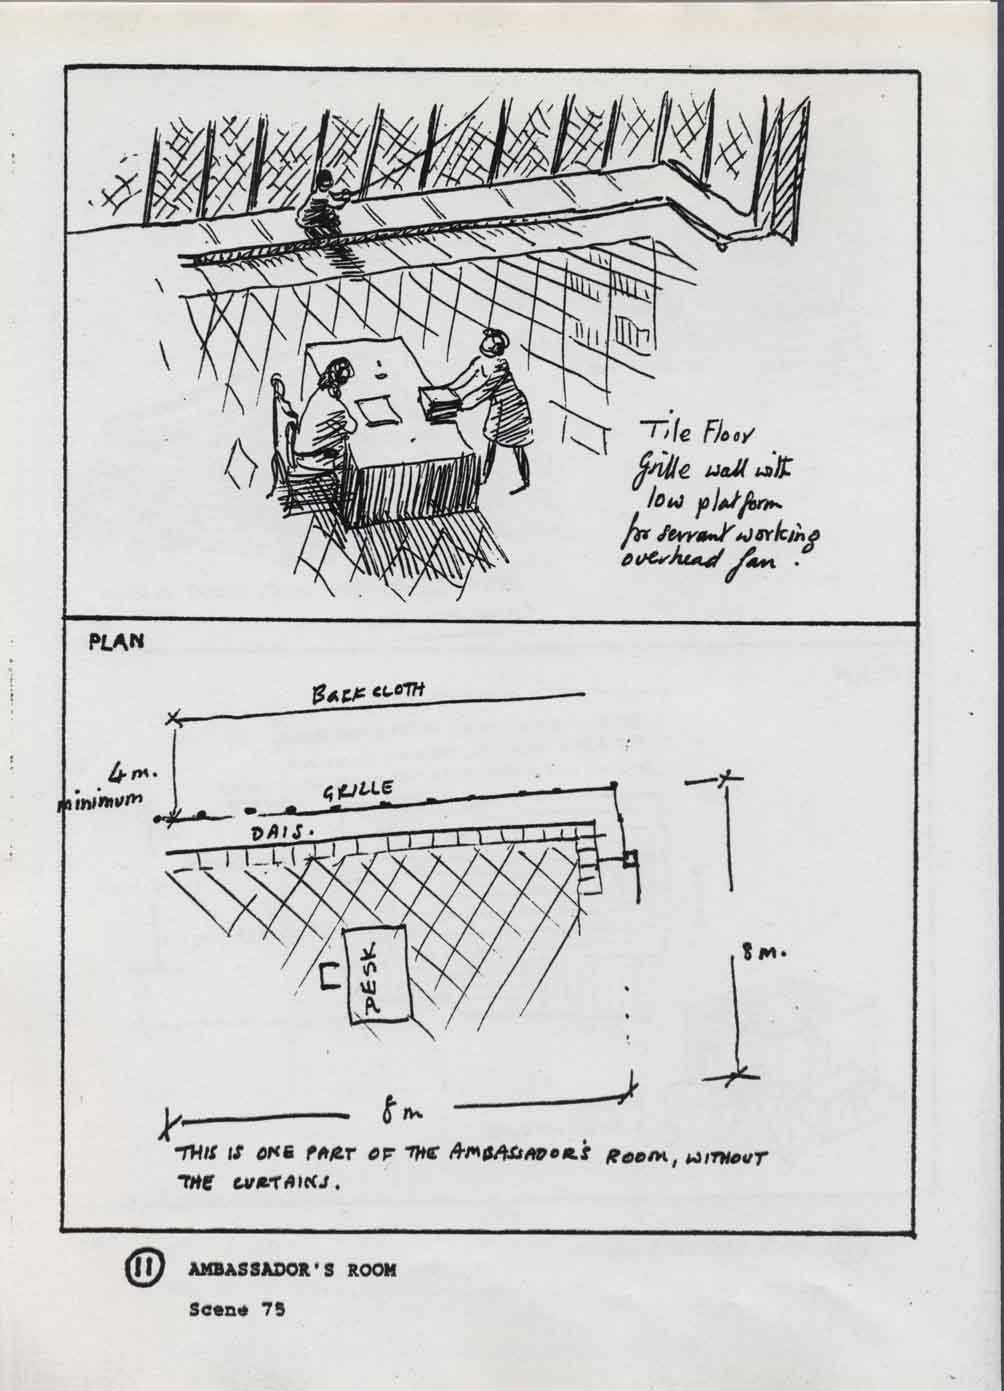 Tile Floor
Grille wall with
low platform
for servant working
overhead fan.
PLAN
BACKCLOTH
4 m.
minimum
GRILLE
DAIS.
DESK
8 m.
8 m
THIS IS ONE PART OF THE AMBASSADOR'S ROOM, WITHOUT
THE CURTAINS.
11 AMBASSADOR'S ROOM
Scene 75